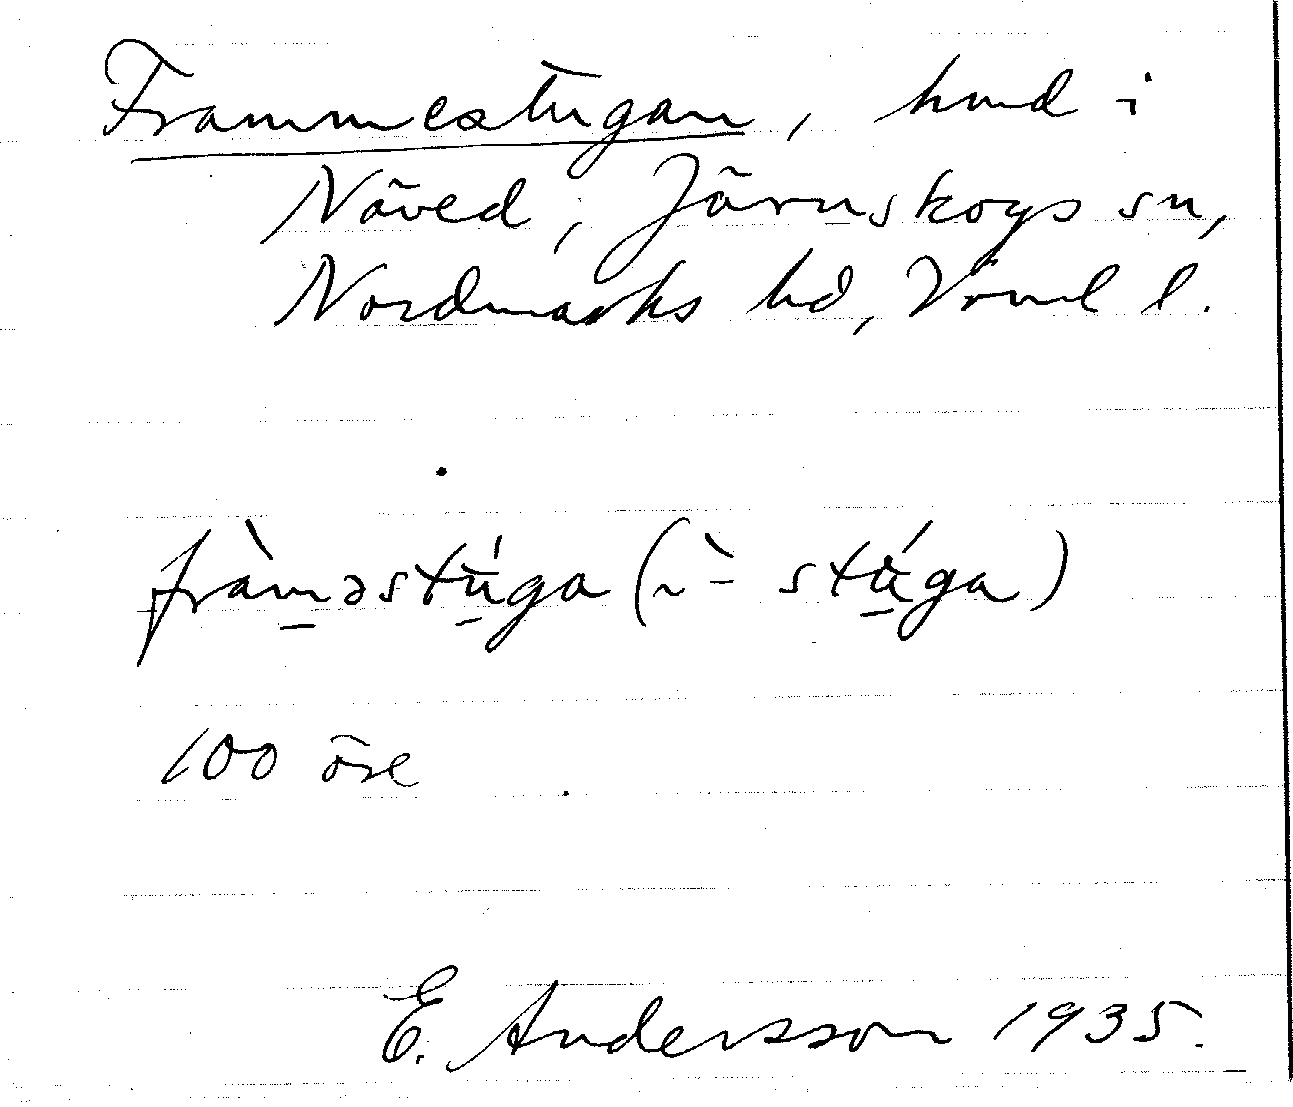 Frammestugan, hmd i
Näved, Järnskogs sn,
Nordmarks hd, Värml l.
fràməstúga (~̀- stúga)
100 öre
E. Andersson 1935.